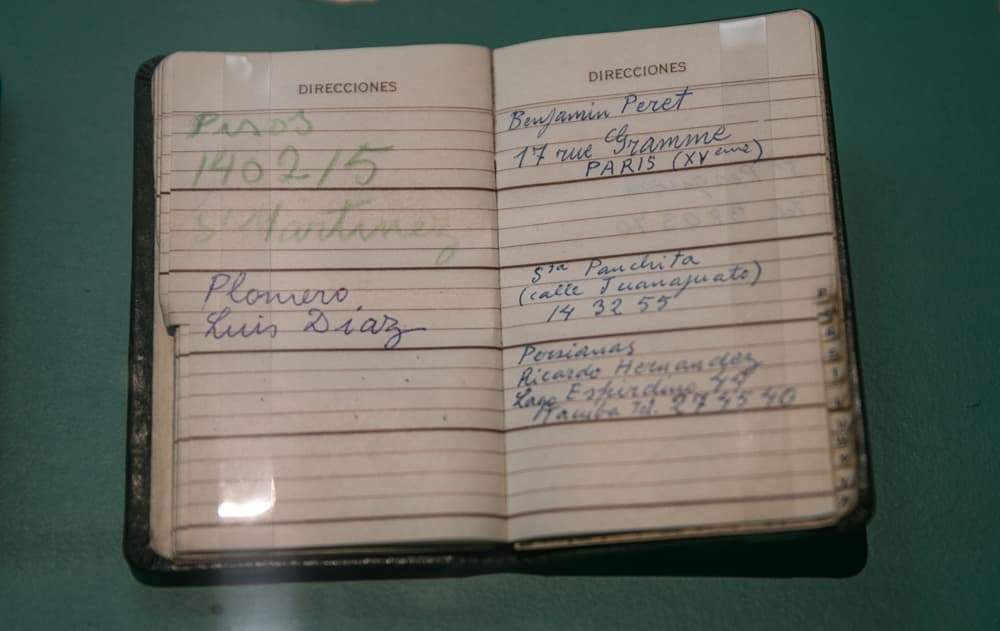 DIRECCIONES
Pisos
1402/5
Sr Martinez
Plomero
Luis Diaz
DIRECCIONES
Benjamin Peret
17 rue Gramme
PARIS (XVeme)
Sra Panchita
(calle Juanajuato)
14 32 55
Persianas
Ricardo Hernandez
Lago Espirdino 44
Tel. 27 45 40